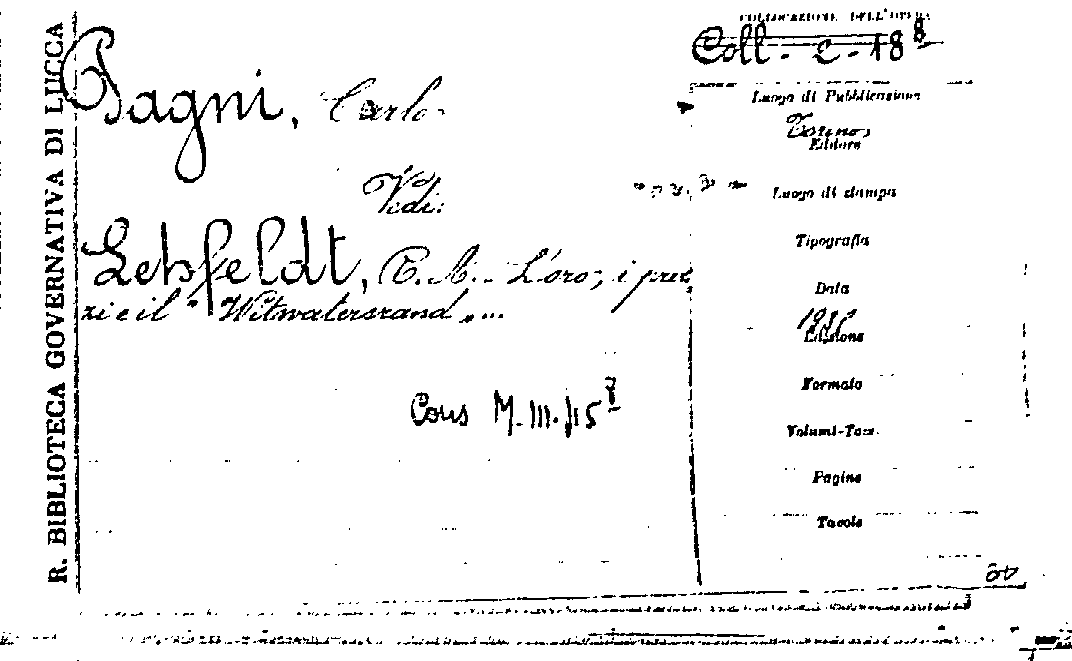 R. BIBLIOTECA GOVERNATIVA DI LUCCA
COLLOCAZIONE DELL'OPERA
Coll. - C - 18 8
Pagni, Carlo
Vedi:
Lehfeldt, R. A. - L'oro, i prez
zi e il "Witwatersrand"...
Cons M. III. 115 7
Luogo di Pubblicazione
Torino,
Editore
Luogo di stampa
Tipografia
Data
Edizione
Formato
Volumi-Tom.
Pagine
Tavole